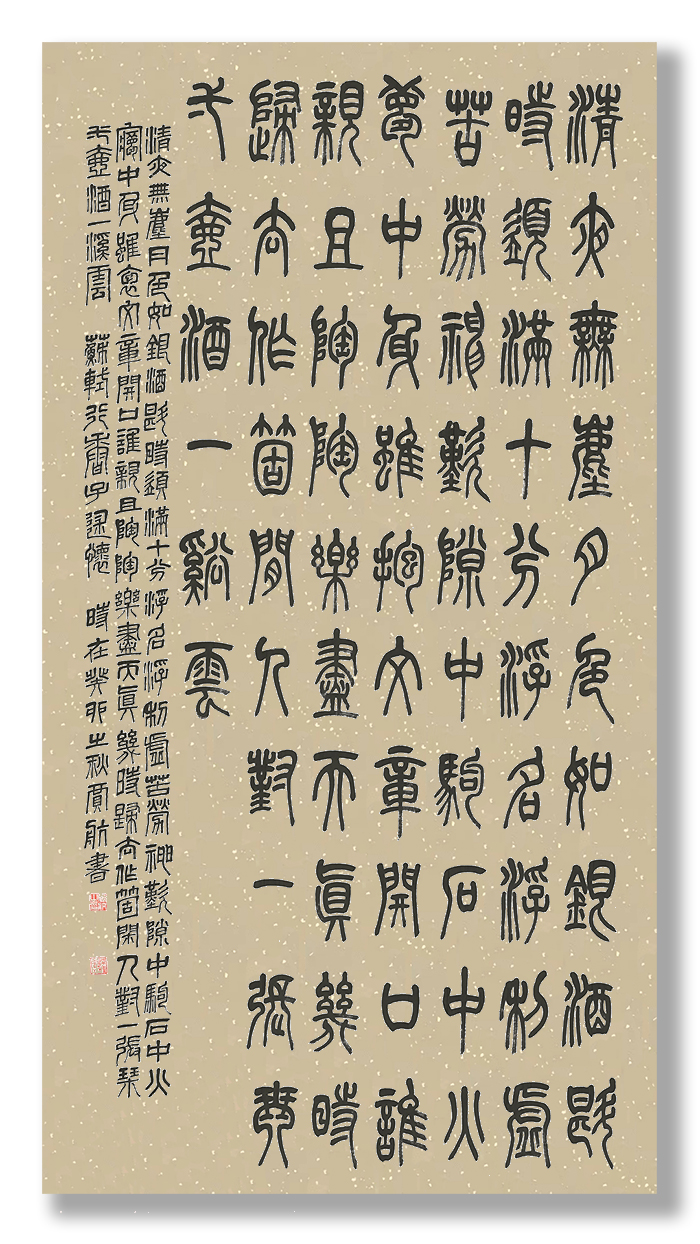 清夜無塵月色如銀酒斟
時須滿十分浮名浮利虛
苦勞神歎隙中駒石中火
夢中身雖抱文章開口誰
親且陶陶樂盡天真幾時
歸去作箇閒人對一張琴
弌壺酒一谿雲
清夜無塵月色如銀酒斟時須滿十分浮名浮利虛苦勞神歎隙中駒石中火
夢中身雖抱文章開口誰親且陶陶樂盡天真幾時歸去作箇閑人對一張琴
弌壺酒一溪雲 蘇軾行香子述懷 時在癸卯之秋賈航書